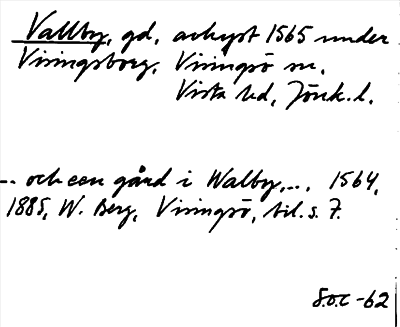 Vallby, gd, avhyst 1565 under
Visingsborg, Visingsö sn,
Vista hd, Jönk. l.
... och een gård i Walby, ..., 1564,
1885, W. Berg, Visingsö, bil. s. 7.
S.O.C -62